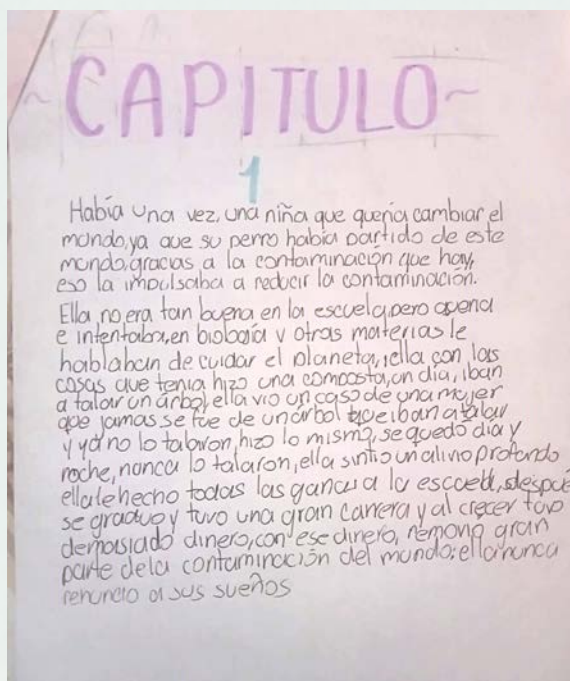 ~CAPITULO~
1
Había una vez, una niña que quería cambiar el
mundo, ya que su perro había partido de este
mundo, gracias a la contaminación que hay,
eso la impulsaba a reducir la contaminación.
Ella no era tan buena en la escuela, pero
e intentaba, en biología y otras materias le
hablaban de cuidar el planeta, ella con las
cosas que tenía hizo una composta, un día, iban
a talar un árbol, ella vio un caso de una mujer
que jamas se fue de un árbol que iban a talar
y ya no lo talaron, hizo lo mismo, se quedó día y
noche, nunca lo talaron, ella sintio un alivio profundo
ella le hecho todas las ganas a la escuela, despué
se graduo y tuvo una gran carrera y al crecer tuvo
demasiado dinero, con ese dinero, removió gran
parte de la contaminación del mundo, ella nunca
renuncio a sus sueños